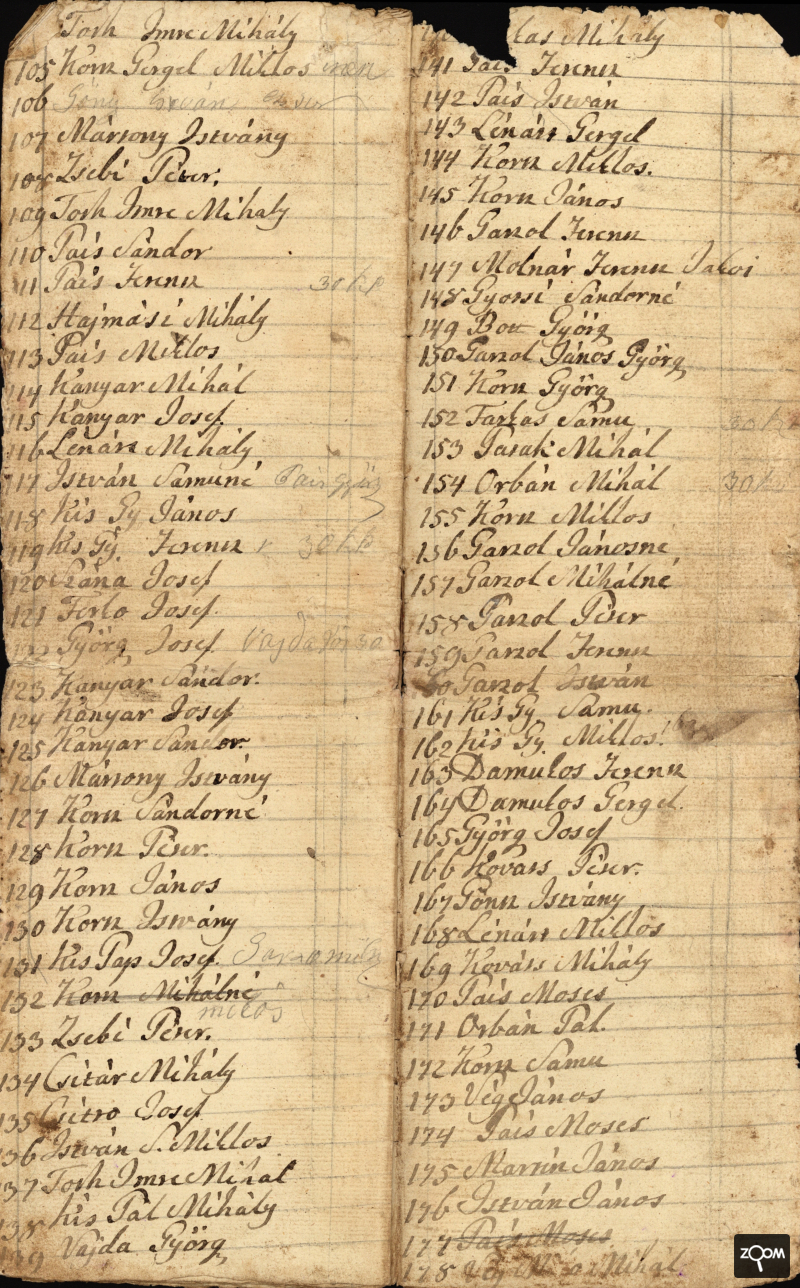 Toth Imre Mihály
105 Korn Gergel Miklos
106 István
107 Mársony Istvány
108 Zsebi Péter.
109 Toth Imre Mihaly
110 Pais Sándor
111 Pais Ferenn 30 kr
112 Hajmási Mihály
113 Pais Miklos
114 Kanyar Mihál
115 Kanyar Josef
116 Lénárt Mihály
117 István Samuné Pais
118 Kis Gy János
119 Kis Gy. Ferenn 30 kr
120 Josef
121 Ferlo Josef
122 Györg Josef Vajda
123 Kanyar Sándor.
124 Kanyar Josef
125 Kanyar Sándor.
126 Mársony Istvány
127 Korn Sándorné
128 Korn Péter.
129 Korn János
130 Korn Istvány
131 Kis Pap Josef
132 Korn Mihálné
miklos
133 Zsebi Péter.
134 Csitár Mihály
135 Csitro Josef
136 István S. Miklos
137 Toth Imre Mihál
138 Kis Pál Mihály
139 Vajda Györg
Mihály
141 Pais Ferenn
142 Pais István
143 Lénárt Gergel
144 Korn Miklos.
145 Korn János
146 Garzol Ferenn
147 Molnár Ferenn
148 Gyorsi Sándorné
149 Györg
150 Garzol János Györg
151 Korn Györg
152 Farkas Samu 30 kr
153 Mihál
154 Orbán Mihál 30 kr
155 Korn Miklos
156 Garzol Jánosné
157 Garzol Mihálné
158 Garzol Péter
159 Garzol Ferenn
160 Garzol István
161 Kis Gy. Samu.
162 Kis Gy. Miklos.
163 Damulos Ferenn
164 Damulos Gergel.
165 Györg Josef
166 Kovats Péter.
167 Gönn Istvány
168 Lénárt Miklos
169 Kováts Mihály
170 Pais Moses
171 Orbán Pál.
172 Korn Samu
173 Vég János
174 Pais Moses
175 Martin János
176 István János
177 Pais Moses
178 Mihál
ZOOM